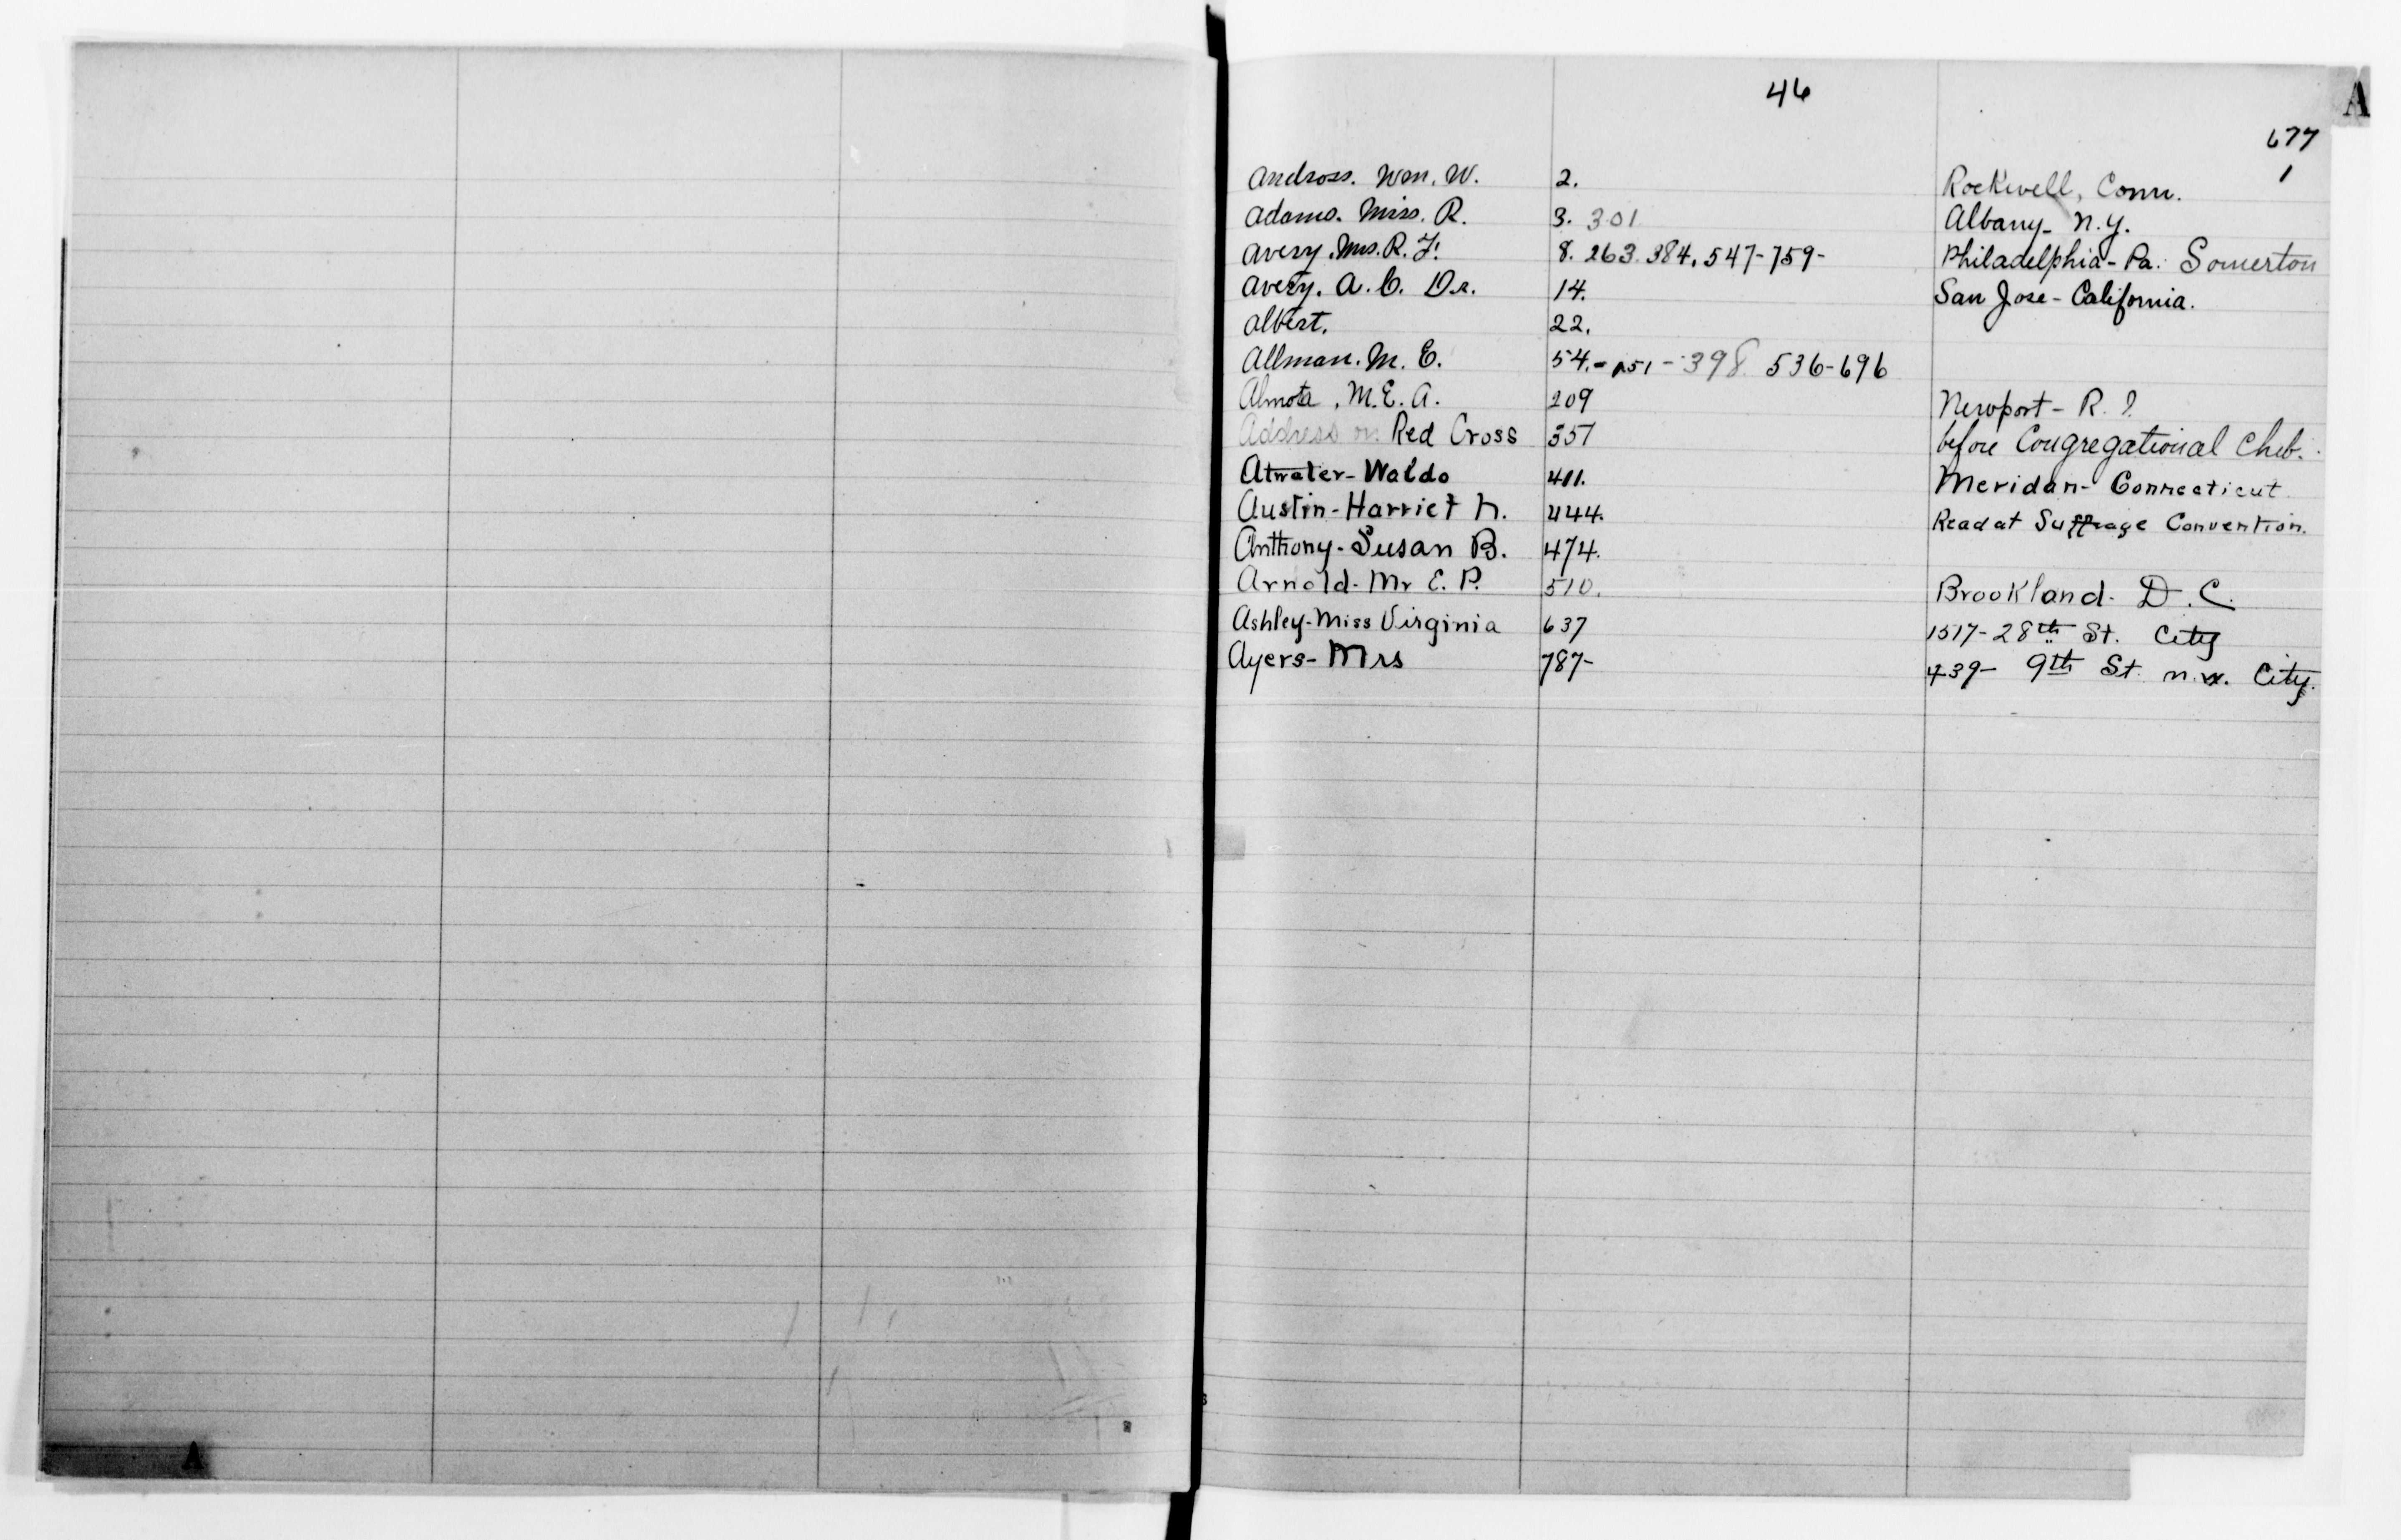 46
A
677
1
Andross. Wm. W. 2. Rockwell, Conn.
Adams. Miss. R. 3. 301 Albany- N.Y.
Avery. Mrs. R. F. 8. 263. 384. 547-759- Philadelphia- Pa. Somerton
Avery. A. C. Dr. 14. San Jose- California.
Albert. 22.
Allman. M. E. 54.- 151- 398 536-696
Almota. M. E. A. 209 Newport- R. I.
Address on Red Cross 351 before Congregational Club.
Atwater- Waldo 411. Meridan- Connecticut
Austin- Harriet N. 444. Read at Suffrage Convention.
Anthony- Susan B. 474.
Arnold- Mr E. P. 510. Brookland- D. C.
Ashley- Miss Virginia 637 1517- 28th St. City
Ayers- Mrs 787- 439- 9th St. n.w. City.
A